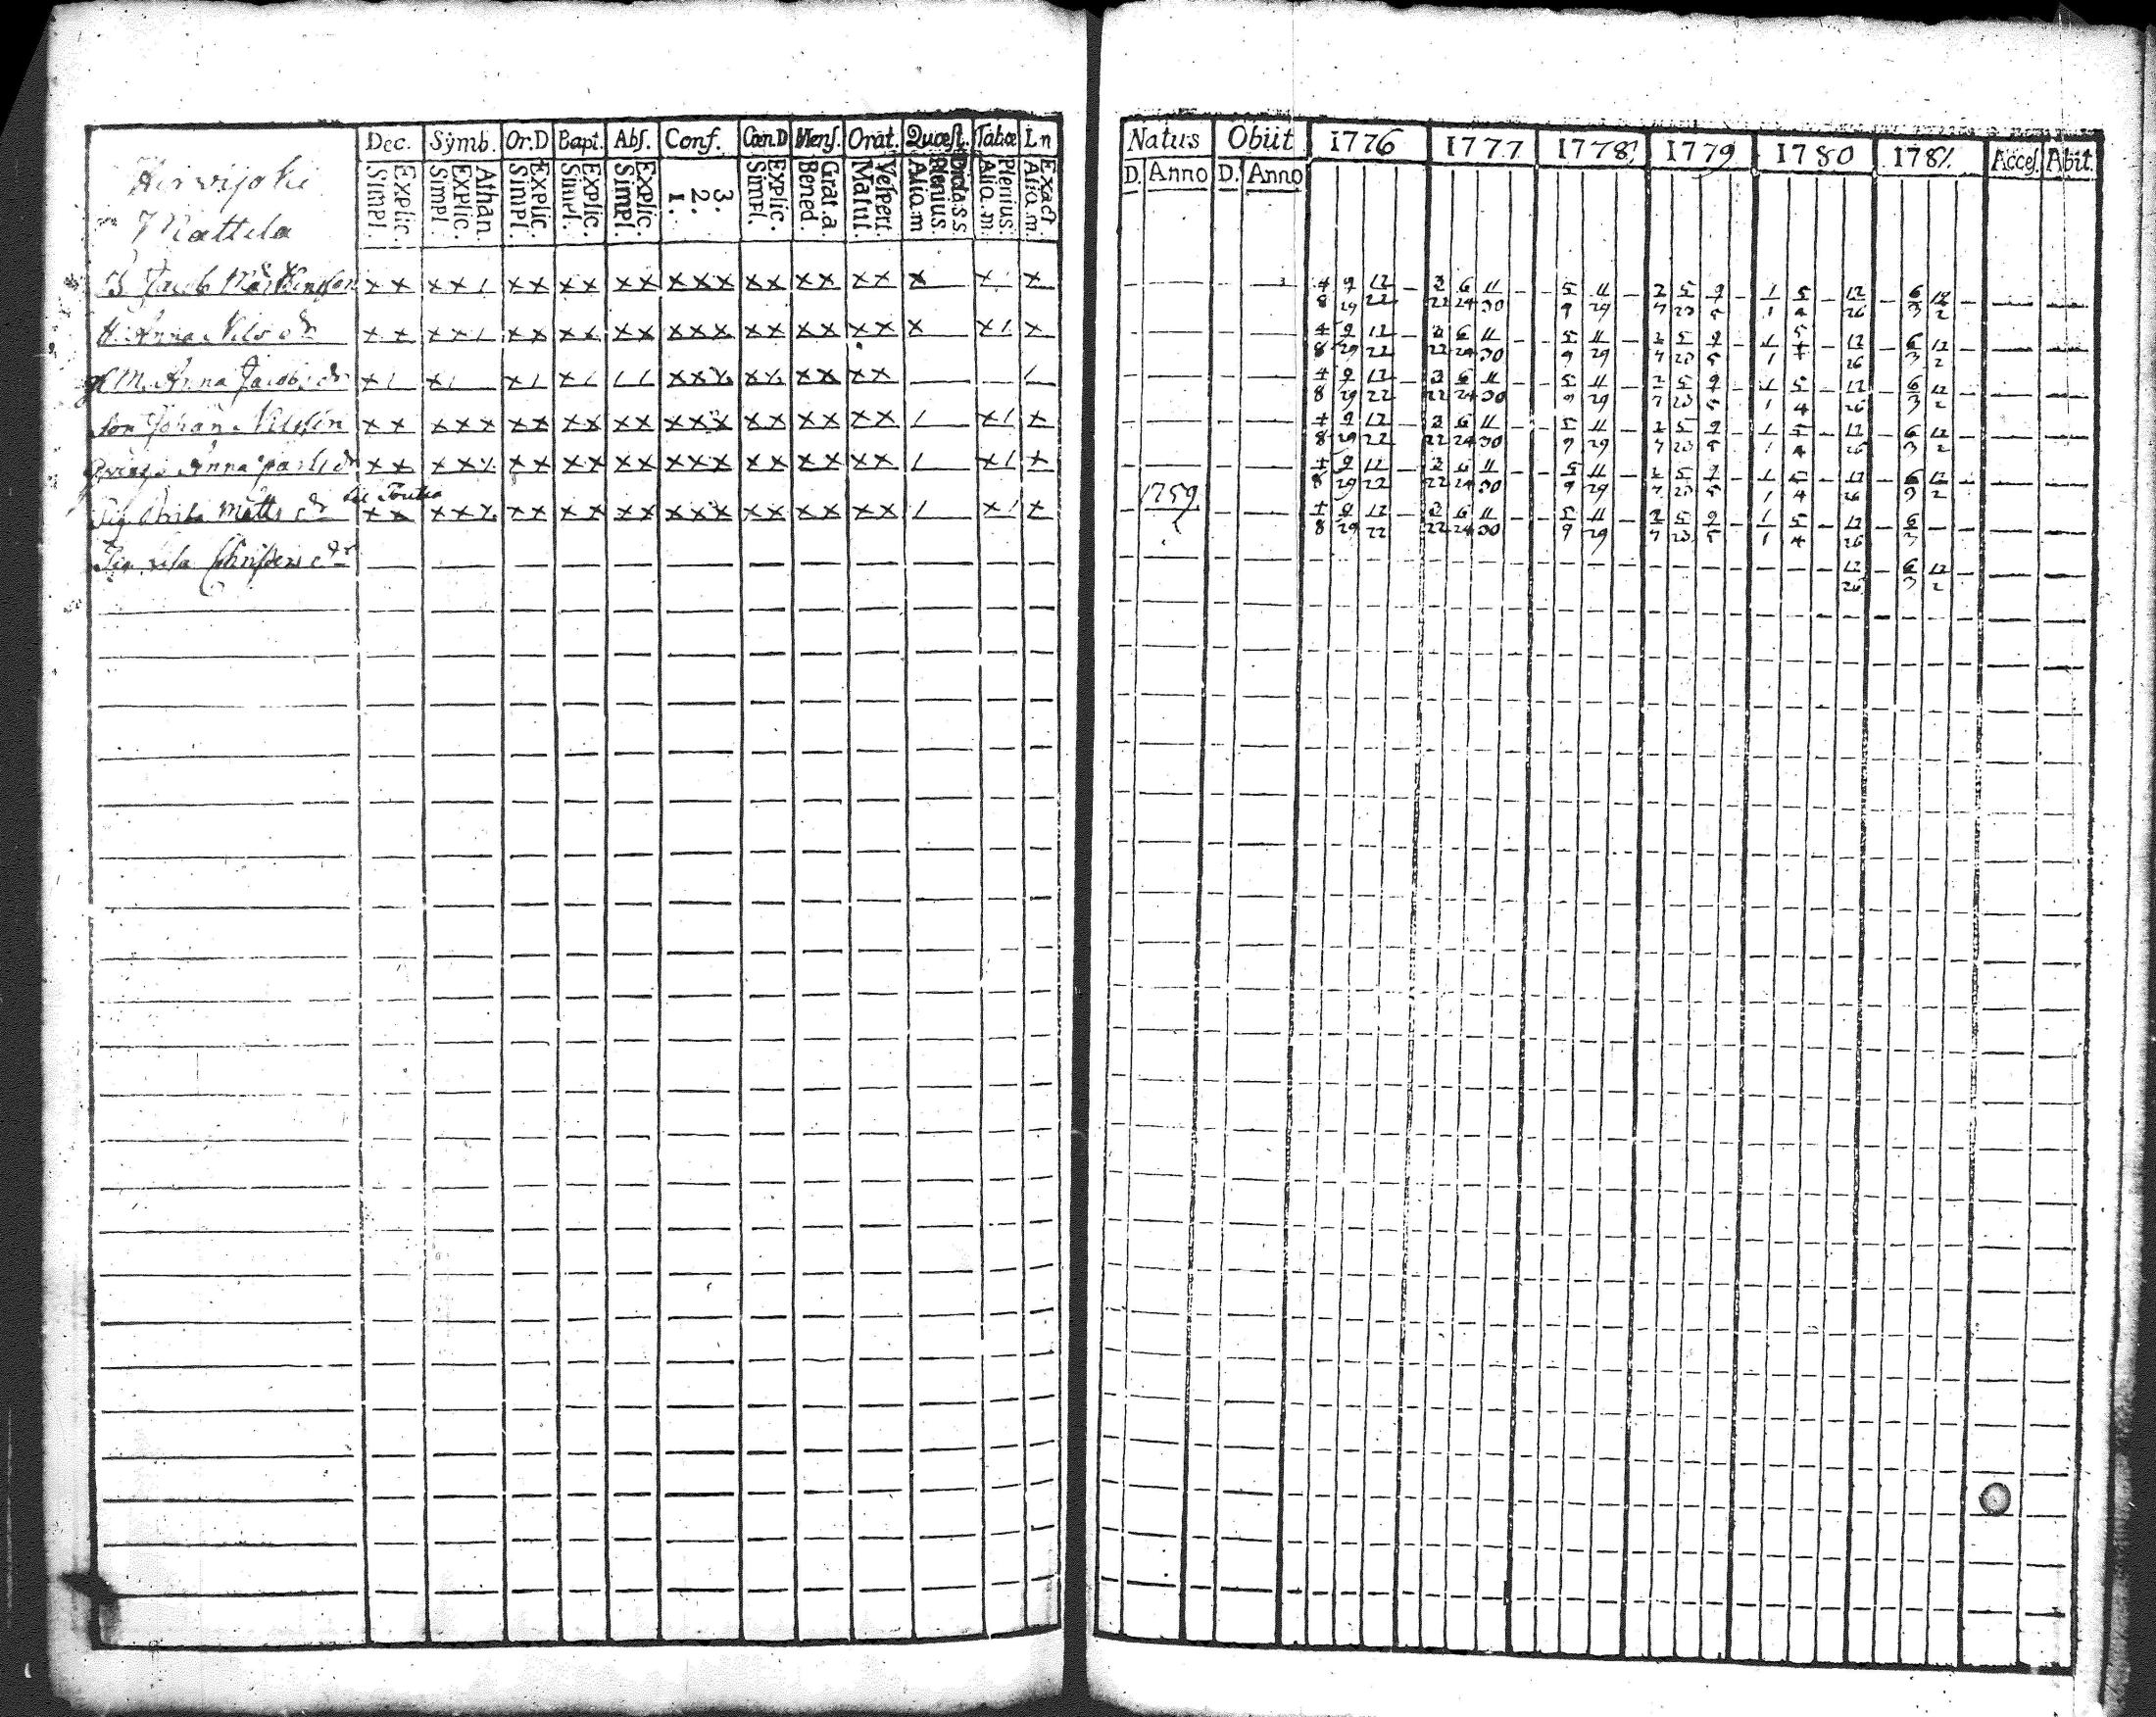 Dec. Symb. Or.D Bapt. Abſ. Conf. Cœn.D Menſ. Orat. Quæſt. Tabæ Ln
Explic. Simpl. Athan. Explic. Simpl. Explic. Simpl. Explic. Simpl. Explic. Simpl. 3. 2. 1. Explic. Simpl. Grat.a Bened. Veſpert. Matut. Dicta.s.s Plenius. Alia.m Plenius. Alia.m. Exact Alia.m.
Hirvijoki
Mattila
B Jacob
H. Anna Nils dr
M. Anna Jacobs dr
Son Johan Nilsson
Anna
Pig Matts dr
Pig Lisa Christers dr
Natus Obiit 1776 1777 1778 1779 1780 1781 Acceſ. Abit.
D. Anno D. Anno
4 9 12 2 6 11 5 11 2 5 9 1 5 12 6 12
8 29 22 22 24 30 9 29 7 23 5 1 4 26 3 2
4 9 12 2 6 11 5 11 2 5 9 1 5 12 6 12
8 29 22 22 24 30 9 29 7 23 5 1 4 26 3 2
4 9 12 2 6 11 5 11 2 5 9 1 5 12 6 12
8 29 22 22 24 30 9 29 7 23 5 1 4 26 3 2
4 9 12 2 6 11 5 11 2 5 9 1 5 12 6 12
8 29 22 22 24 30 9 29 7 23 5 1 4 26 3 2
4 9 12 2 6 11 5 11 2 5 9 1 5 12 6 12
8 29 22 22 24 30 9 29 7 23 5 1 4 26 3 2
1759 4 9 12 2 6 11 5 11 2 5 9 1 5 12 6
8 29 22 22 24 30 9 29 7 23 5 1 4 26 3
12 6 12
26 3 2